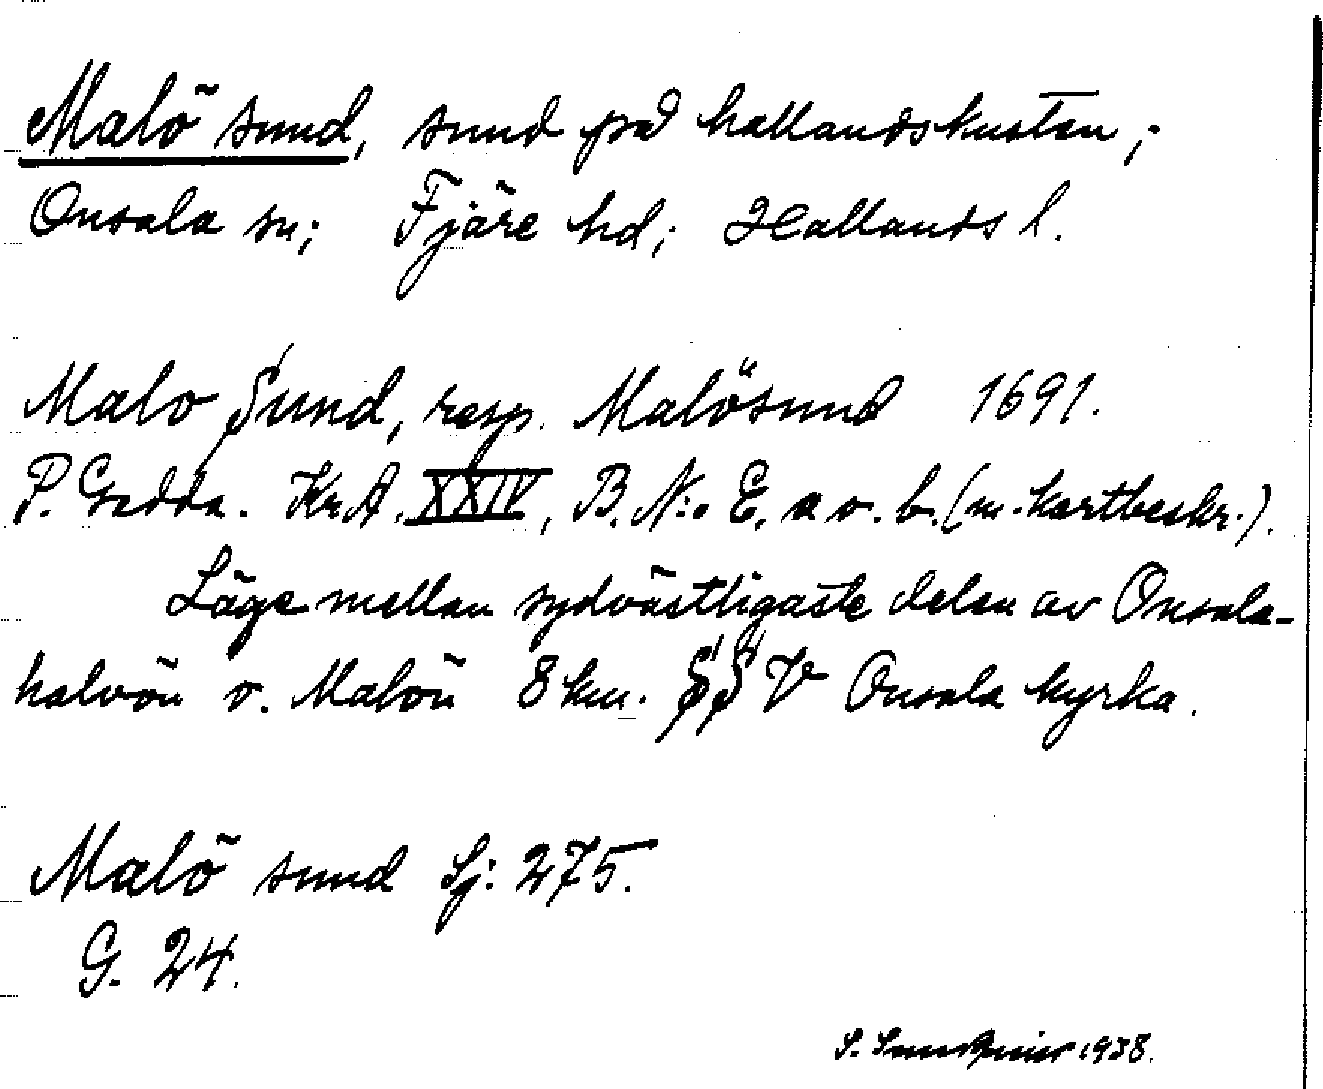 Malö sund, sund på hallandskusten;
Onsala sn; Fjäre hd; Hallands l.
Malo Sund, resp. Malösund 1691.
P. Gedda. Kr.A. XXIV, B. N:o E. a o. b. (m. kartbeskr.).
Läge mellan sydvästligaste delen av Onsala-
halvön o. Malön 8 km. SSV Onsala kyrka.
Malö sund Sj: 275.
G. 24.
S. 1938.